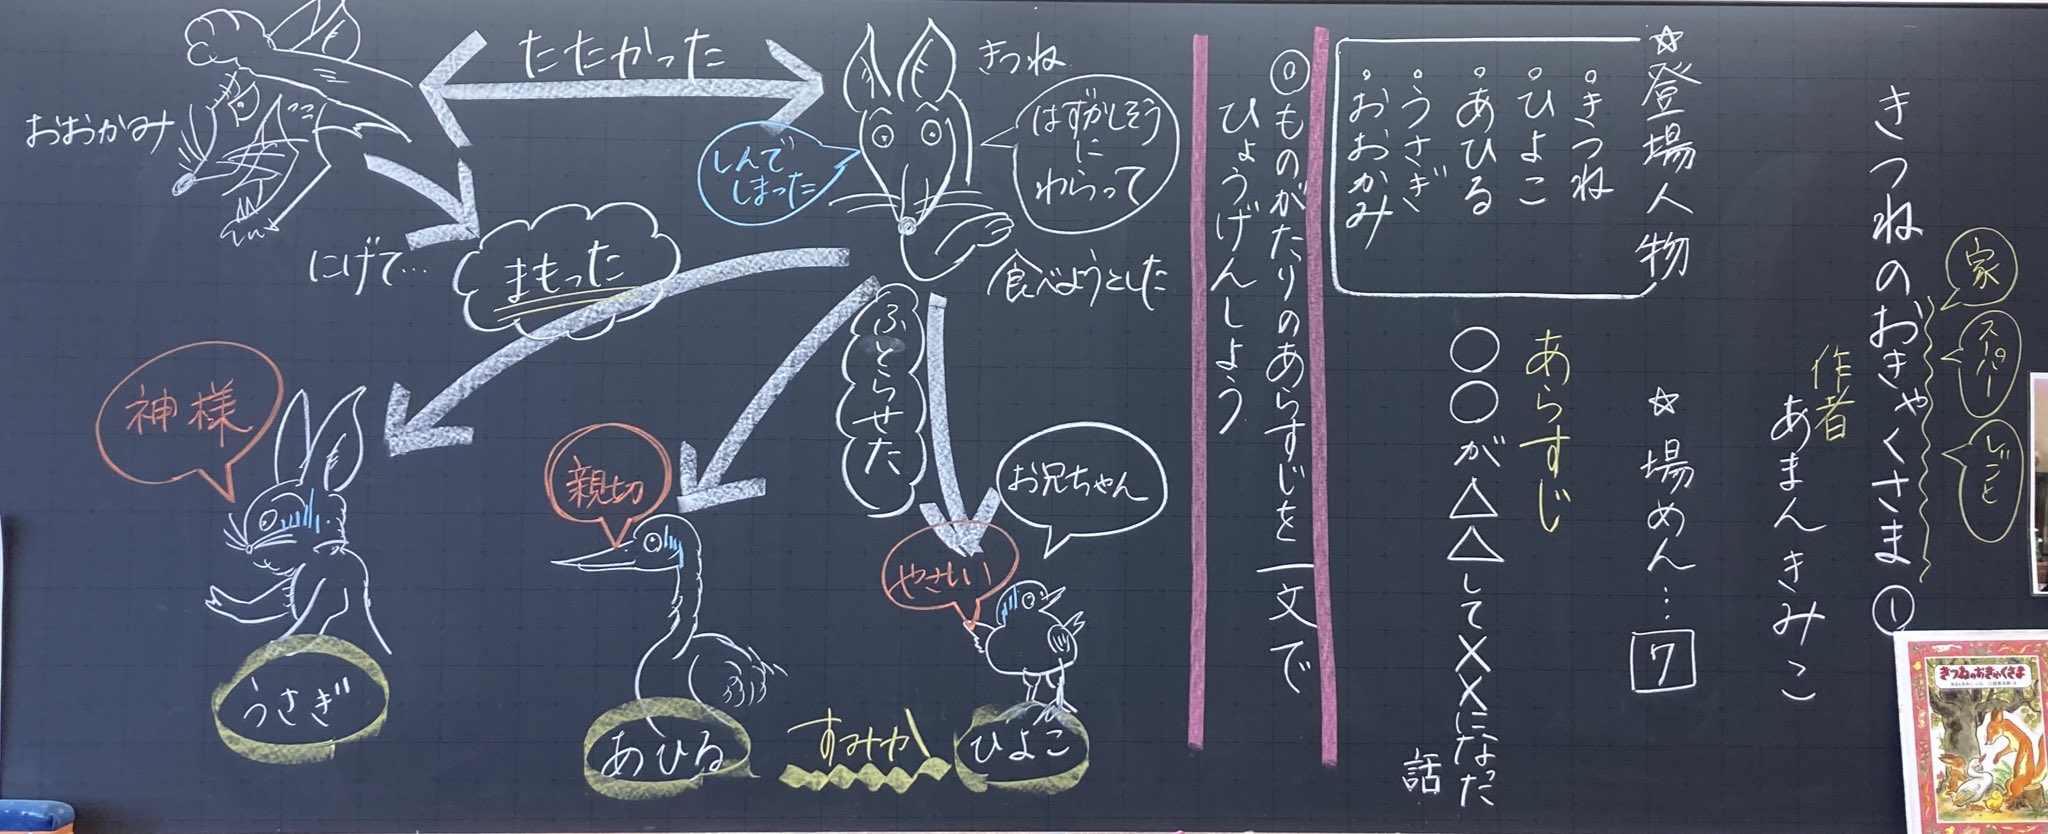 きつねのおきゃくさま①
家
スーパー
しごと
作者
あまんきみこ
☆登場人物
。きつね
。ひよこ
。あひる
。うさぎ
。おおかみ
☆場めん…7
あらすじ
○○が△△して××になった
話
◎ものがたりのあらすじを一文で
ひょうげんしよう
きつね
はずかしそう
に
わらって
しんで
しまった
食べようとした
たたかった
おおかみ
にげて…
まもった
ふとらせた
お兄ちゃん
やさしい
ひよこ
すみか
親切
あひる
神様
うさぎ
きつねのおきゃくさま